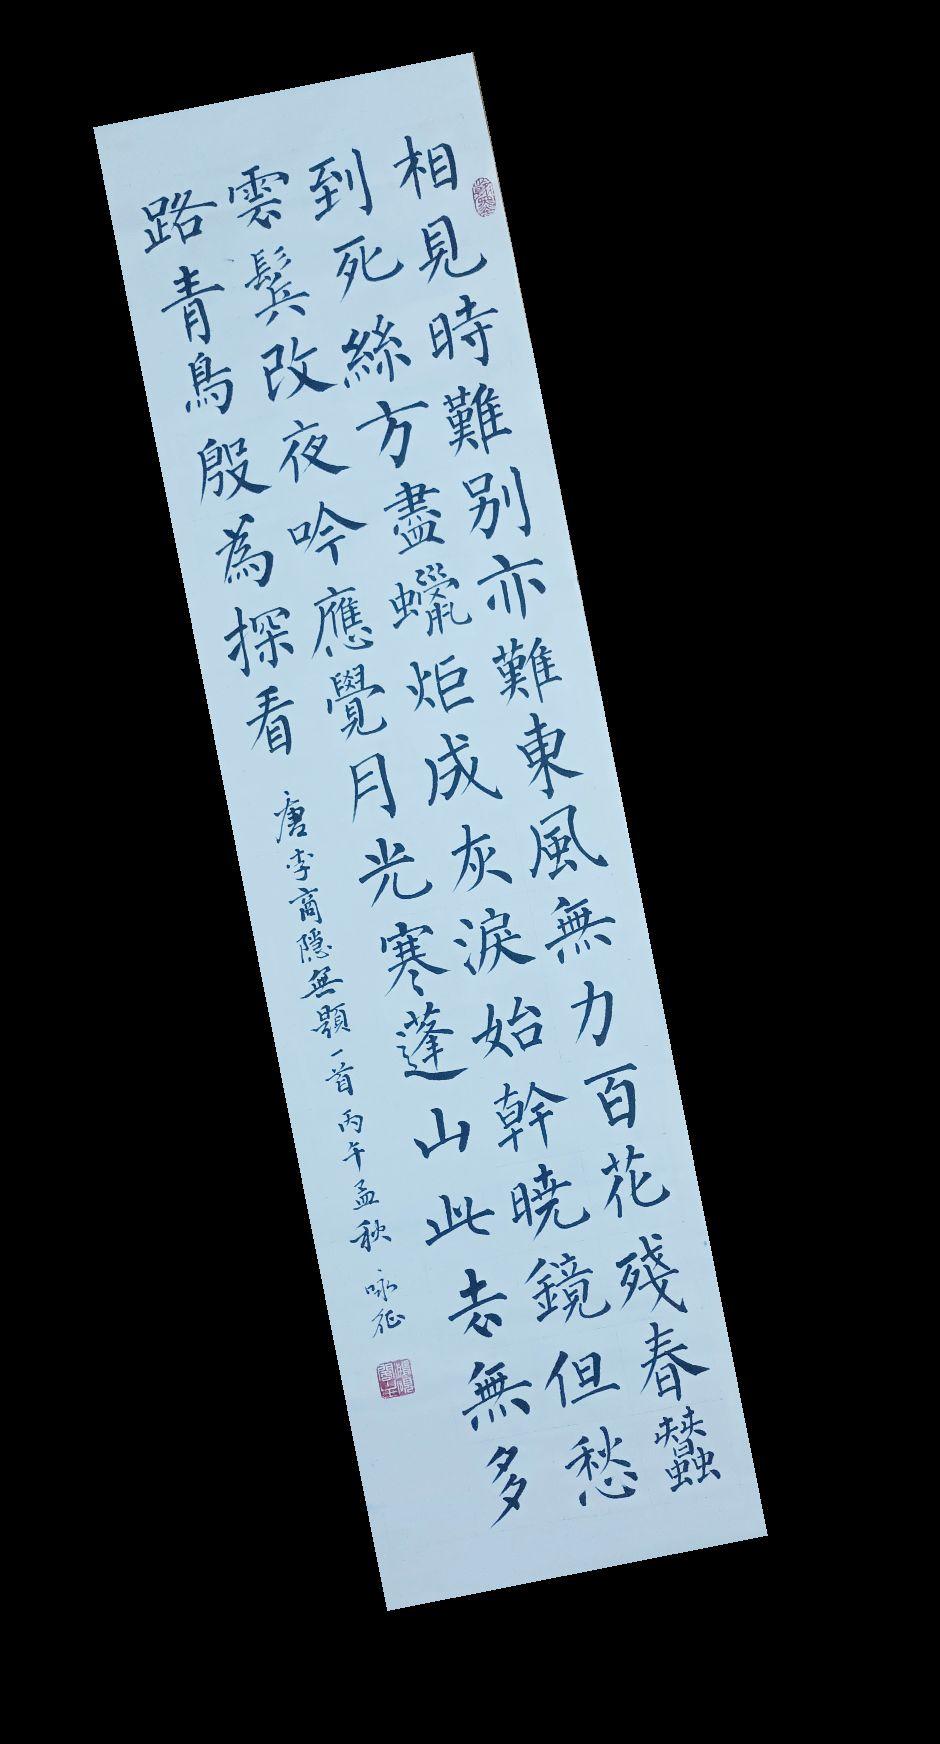 相見時難别亦難東風無力百花殘春蠶
到死絲方盡蠟炬成灰淚始幹曉鏡但愁
雲鬓改夜吟應覺月光寒蓬山此去無多
路青鳥殷為探看
唐李商隐無题一首丙午孟秋 咏征